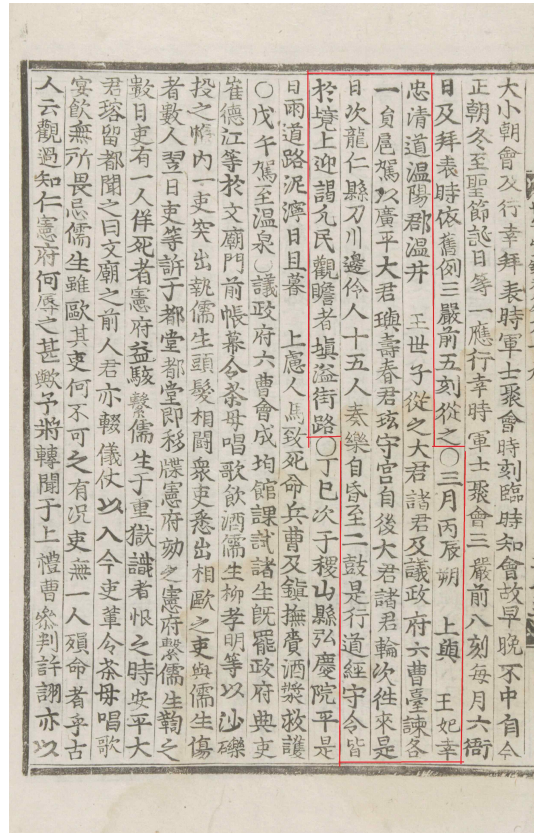 大小朝會及行幸拜表時軍士聚會時刻臨時知會故早晚不中自今
正朝冬至聖節誕日等一應行幸時軍士聚會三嚴前八刻每月六衙
日及拜表時依舊例三嚴前五刻從之○三月丙辰朔 上與 王妃幸
忠淸道溫陽郡溫井 王世子從之大君諸君及議政府六曹臺諫各
一員扈駕以廣平大君璵壽春君玹守宮自後大君諸君輪次徃來是
日次龍仁縣刀川邊伶人十五人奏樂自昏至二鼓是行道經守令皆
於境上迎謁凡民觀瞻者塡溢街路○丁巳次于稷山縣弘慶院平是
日雨道路泥濘日且暮 上慮人馬致死命兵曹及鎭撫賫酒漿救護
○戊午駕至溫泉○議政府六曹會成均館課試諸生旣罷政府典吏
崔德江等於文廟門前帳幕令茶母唱歌飮酒儒生柳孝明等以沙礫
投之幃內一吏突出執儒生頭髮相鬪衆吏悉出相歐之吏與儒生傷
者數人翌日吏等訴于都堂都堂卽移牒憲府劾之憲府繫儒生鞫之
數日吏有一人佯死者憲府益駭繫儒生于重獄識者恨之時安平大
君瑢留都聞之曰文廟之前人君亦輟儀仗以入今吏輩令茶母唱歌
宴飮無所畏忌儒生雖歐其吏何不可之有況吏無一人殞命者乎古
人云觀過知仁憲府何辱之甚歟予將轉聞于上禮曹叅判許詡亦以